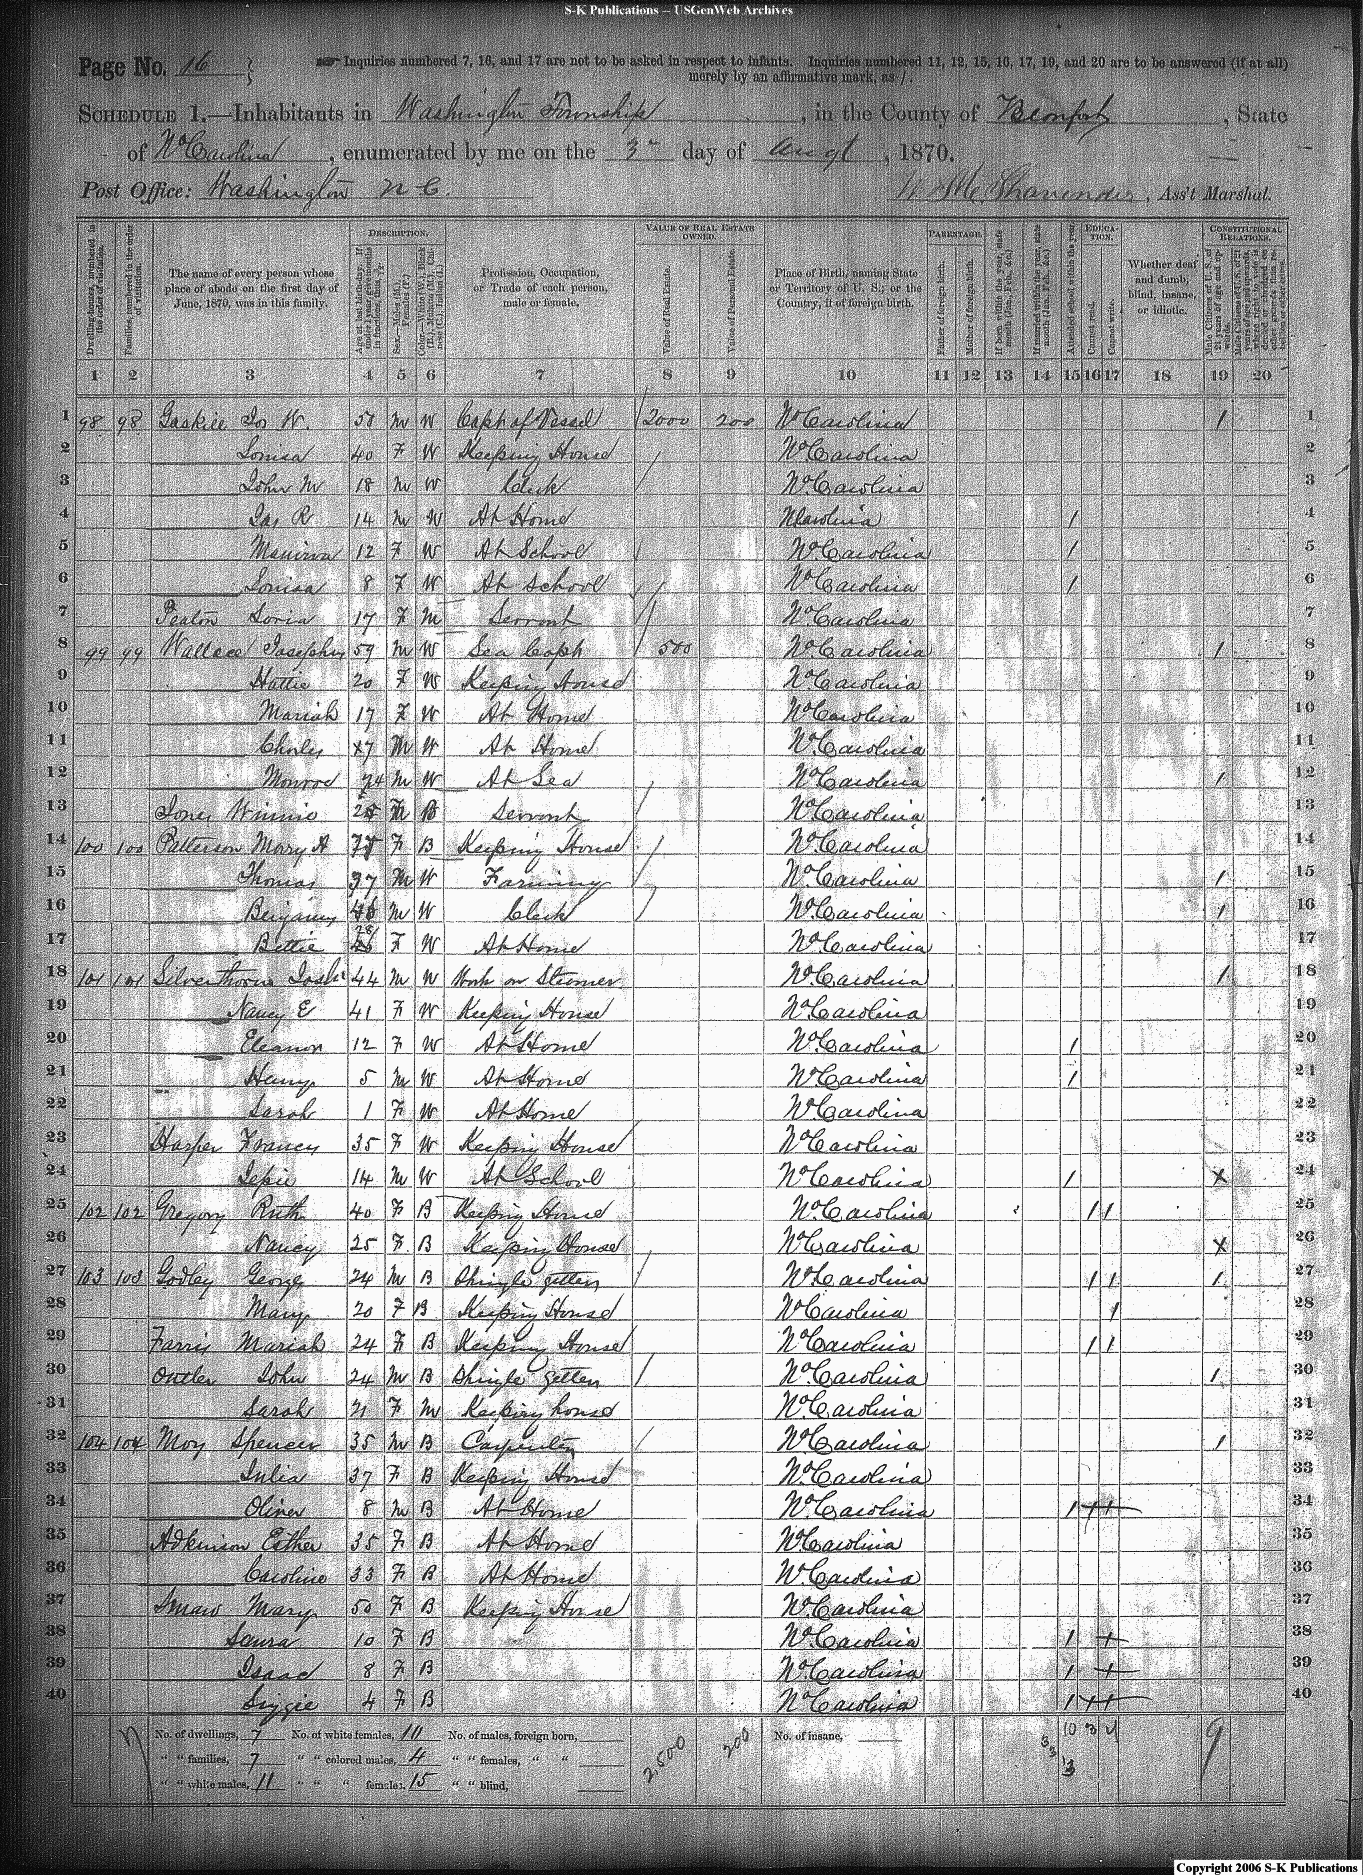 S-K Publications – USGenWeb Archives
Page No. 16
Inquiries numbered 7, 16, and 17 are not to be asked in respect to infants. Inquiries numbered 11, 12, 15, 16, 17, 19, and 20 are to be answered (if at all)
merely by an affirmative mark, as /.
SCHEDULE 1.—Inhabitants in Washington Township, in the County of Beaufort, State
of No Carolina, enumerated by me on the 3rd day of Augt, 1870.
Post Office: Washington N C. Ass't Marshal.
DESCRIPTION. VALUE OF REAL ESTATE OWNED. PARENTAGE. EDUCATION. CONSTITUTIONAL RELATIONS.
The name of every person whose place of abode on the first day of June, 1870, was in this family.
Profession, Occupation, or Trade of each person, male or female.
Value of Real Estate. Value of Personal Estate.
Place of Birth, naming State or Territory of U. S.; or the Country, if of foreign birth.
Father of foreign birth. Mother of foreign birth.
Attended school within the year. Cannot read. Cannot write.
Whether deaf and dumb, blind, insane, or idiotic.
1 2 3 4 5 6 7 8 9 10 11 12 13 14 15 16 17 18 19 20
1 98 98 Gaskill Jos W. 50 M W Capt of Vessel 2000 200 No Carolina / 1
2 Louisa 40 F W Keeping House No Carolina 2
3 John M 18 M W Clerk No Carolina 3
4 Jas R 14 M W At Home N Carolina / 4
5 Manirva 12 F W At School No Carolina / 5
6 Louisa 8 F W At School No Carolina / 6
7 Peaton 17 F M Servant No Carolina 7
8 99 99 Wallace Josephus 59 M W Sea Capt 500 No Carolina / 8
9 Hattie 20 F W Keeping House No Carolina 9
10 Mariah 17 F W At Home No Carolina 10
11 Charles 17 M W At Home No Carolina 11
12 Monroe 24 M W At Sea No Carolina / 12
13 Jones Winnie B Servant No Carolina 13
14 100 100 Patterson Mary A F B Keeping House No Carolina 14
15 Thomas 37 M W Farming No Carolina / 15
16 Benjamin M W Clerk No Carolina / 16
17 Bettie 28 F W At Home No Carolina 17
18 101 101 Silverthorn 44 M W Work on Steamer No Carolina / 18
19 Nancy E 41 F W Keeping House No Carolina 19
20 Eleanor 12 F W At Home No Carolina / 20
21 Henry 5 M W At Home No Carolina / 21
22 Sarah 1 F W At Home No Carolina 22
23 Harper Francy 35 F W Keeping House No Carolina 23
24 14 M W At School No Carolina / X 24
25 102 102 Gregory Ruth 40 F B Keeping House No Carolina / / 25
26 Nancy 25 F B Keeping House No Carolina X 26
27 103 103 Godley George 24 M B Shingle getter No Carolina / / / 27
28 Mary 20 F B Keeping House No Carolina / 28
29 Farris Mariah 24 F B Keeping House No Carolina / / 29
30 Outler John 24 M B Shingle getter No Carolina / 30
31 Sarah 21 F M Keeping house No Carolina 31
32 104 104 Moy Spencer 35 M B Carpenter No Carolina / 32
33 Julia 37 F B Keeping House No Carolina 33
34 Oliver 8 M B At Home No Carolina / 34
35 Adkinson Esther 35 F B At Home No Carolina 35
36 Caroline 33 F B At Home No Carolina 36
37 Smaw Mary 50 F B Keeping House No Carolina 37
38 Laura 10 F B No Carolina / 38
39 Isaac 8 F B No Carolina / 39
40 4 F B No Carolina / 40
No. of dwellings, 7 No. of white females, 10 No. of males, foreign born, No. of insane,
" " families, 7 " " colored males, 4 " " females, " "
" " white males, 11 " " " females, 15 " " blind,
2,500 200 10 3 4 9
Copyright 2006 S-K Publications